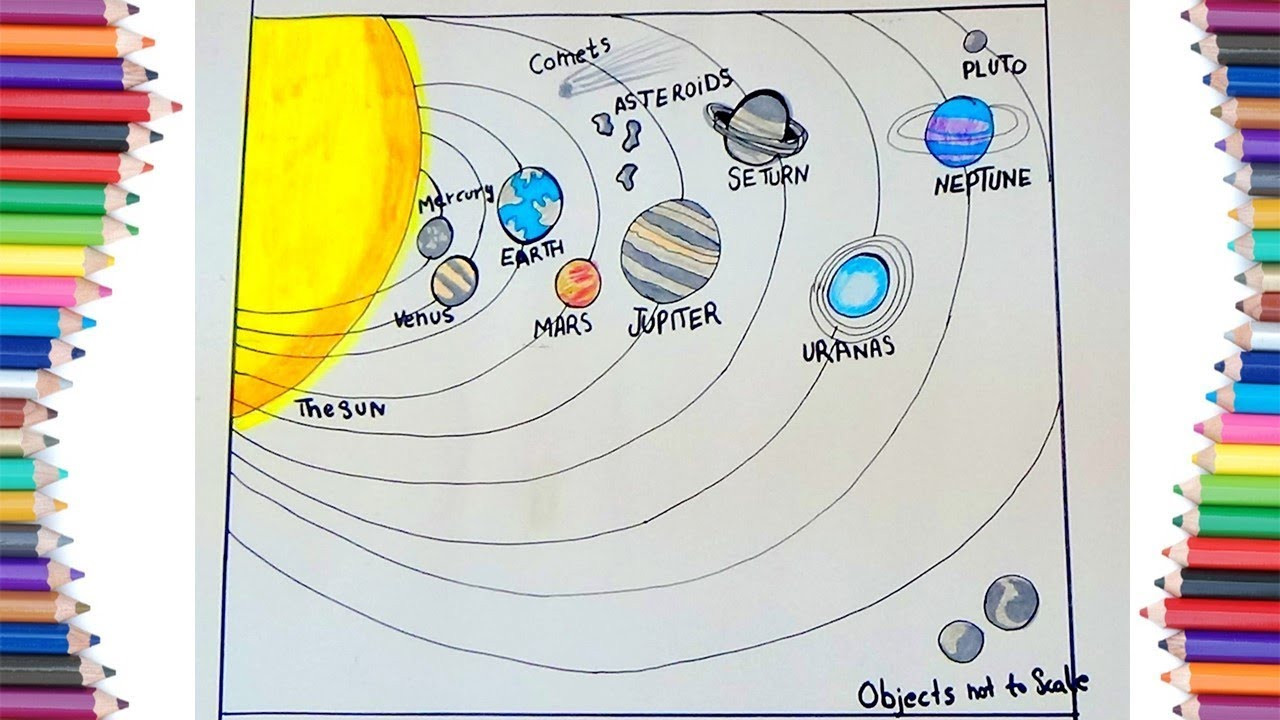 Comets
ASTEROiDS
PLUTO
SETURN
NEPTUNE
Mercury
EARTH
Venus
MARS
JUPITER
URANAS
The SUN
Objects not to Scale